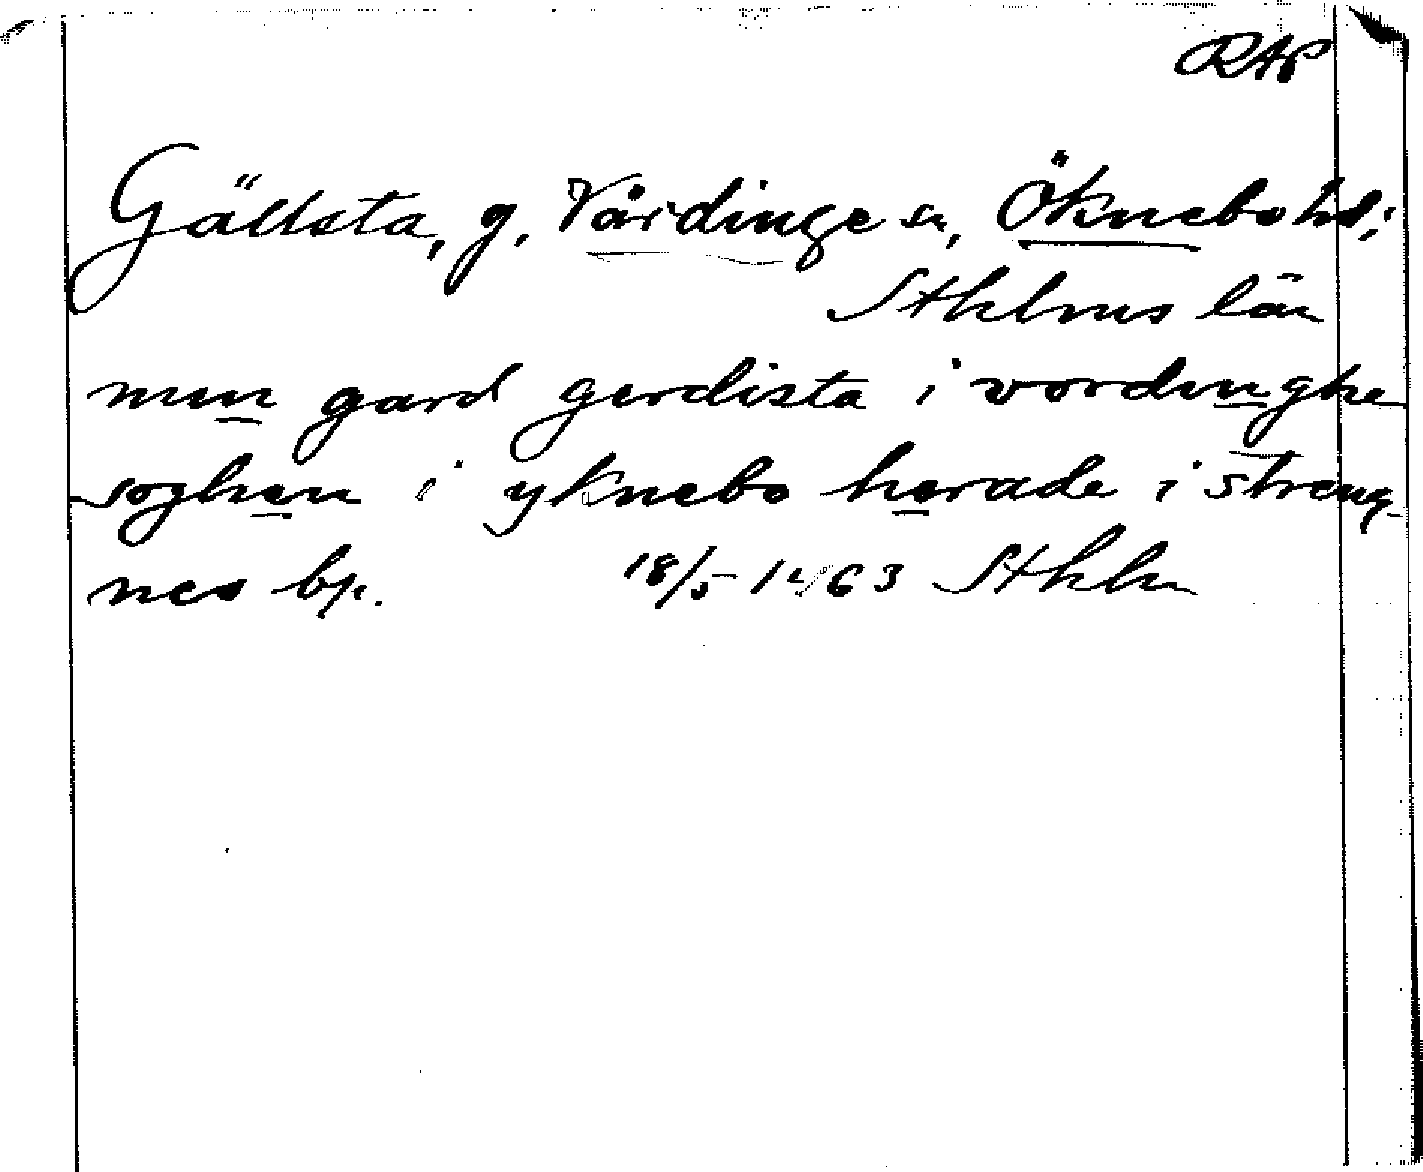 RAP
Gällsta, g. Vårdinge sn, Öknebo hd;
Sthlms län
min gard gerdista i vordinghe
soghen i yknebo herade i streng-
nes bp. 18/5 1463 Sthlm